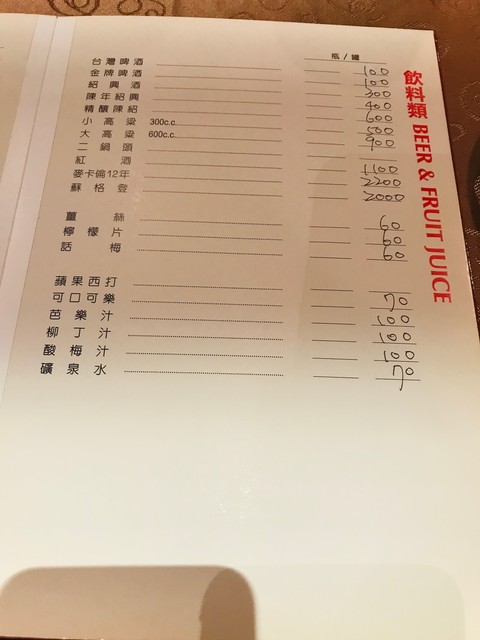 飲料類 BEER & FRUIT JUICE
瓶/罐
台灣啤酒 100
金牌啤酒 100
紹興酒 300
陳年紹興 400
精釀陳紹 600
小高粱 300c.c. 500
大高粱 600c.c. 900
二鍋頭
紅酒 1100
麥卡倫12年 2200
蘇格登 2000
薑絲 60
檸檬片 60
話梅 60
蘋果西打
可口可樂 70
芭樂汁 100
柳丁汁 100
酸梅汁 100
礦泉水 70